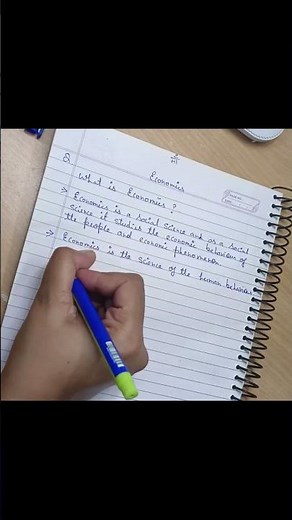 Economics
Q What is Economics ?
→ Economics is a social science and as a social
science it studies the economic behaviour of
the people and economic phenomenon
→ Economics is the science of the human behaviour